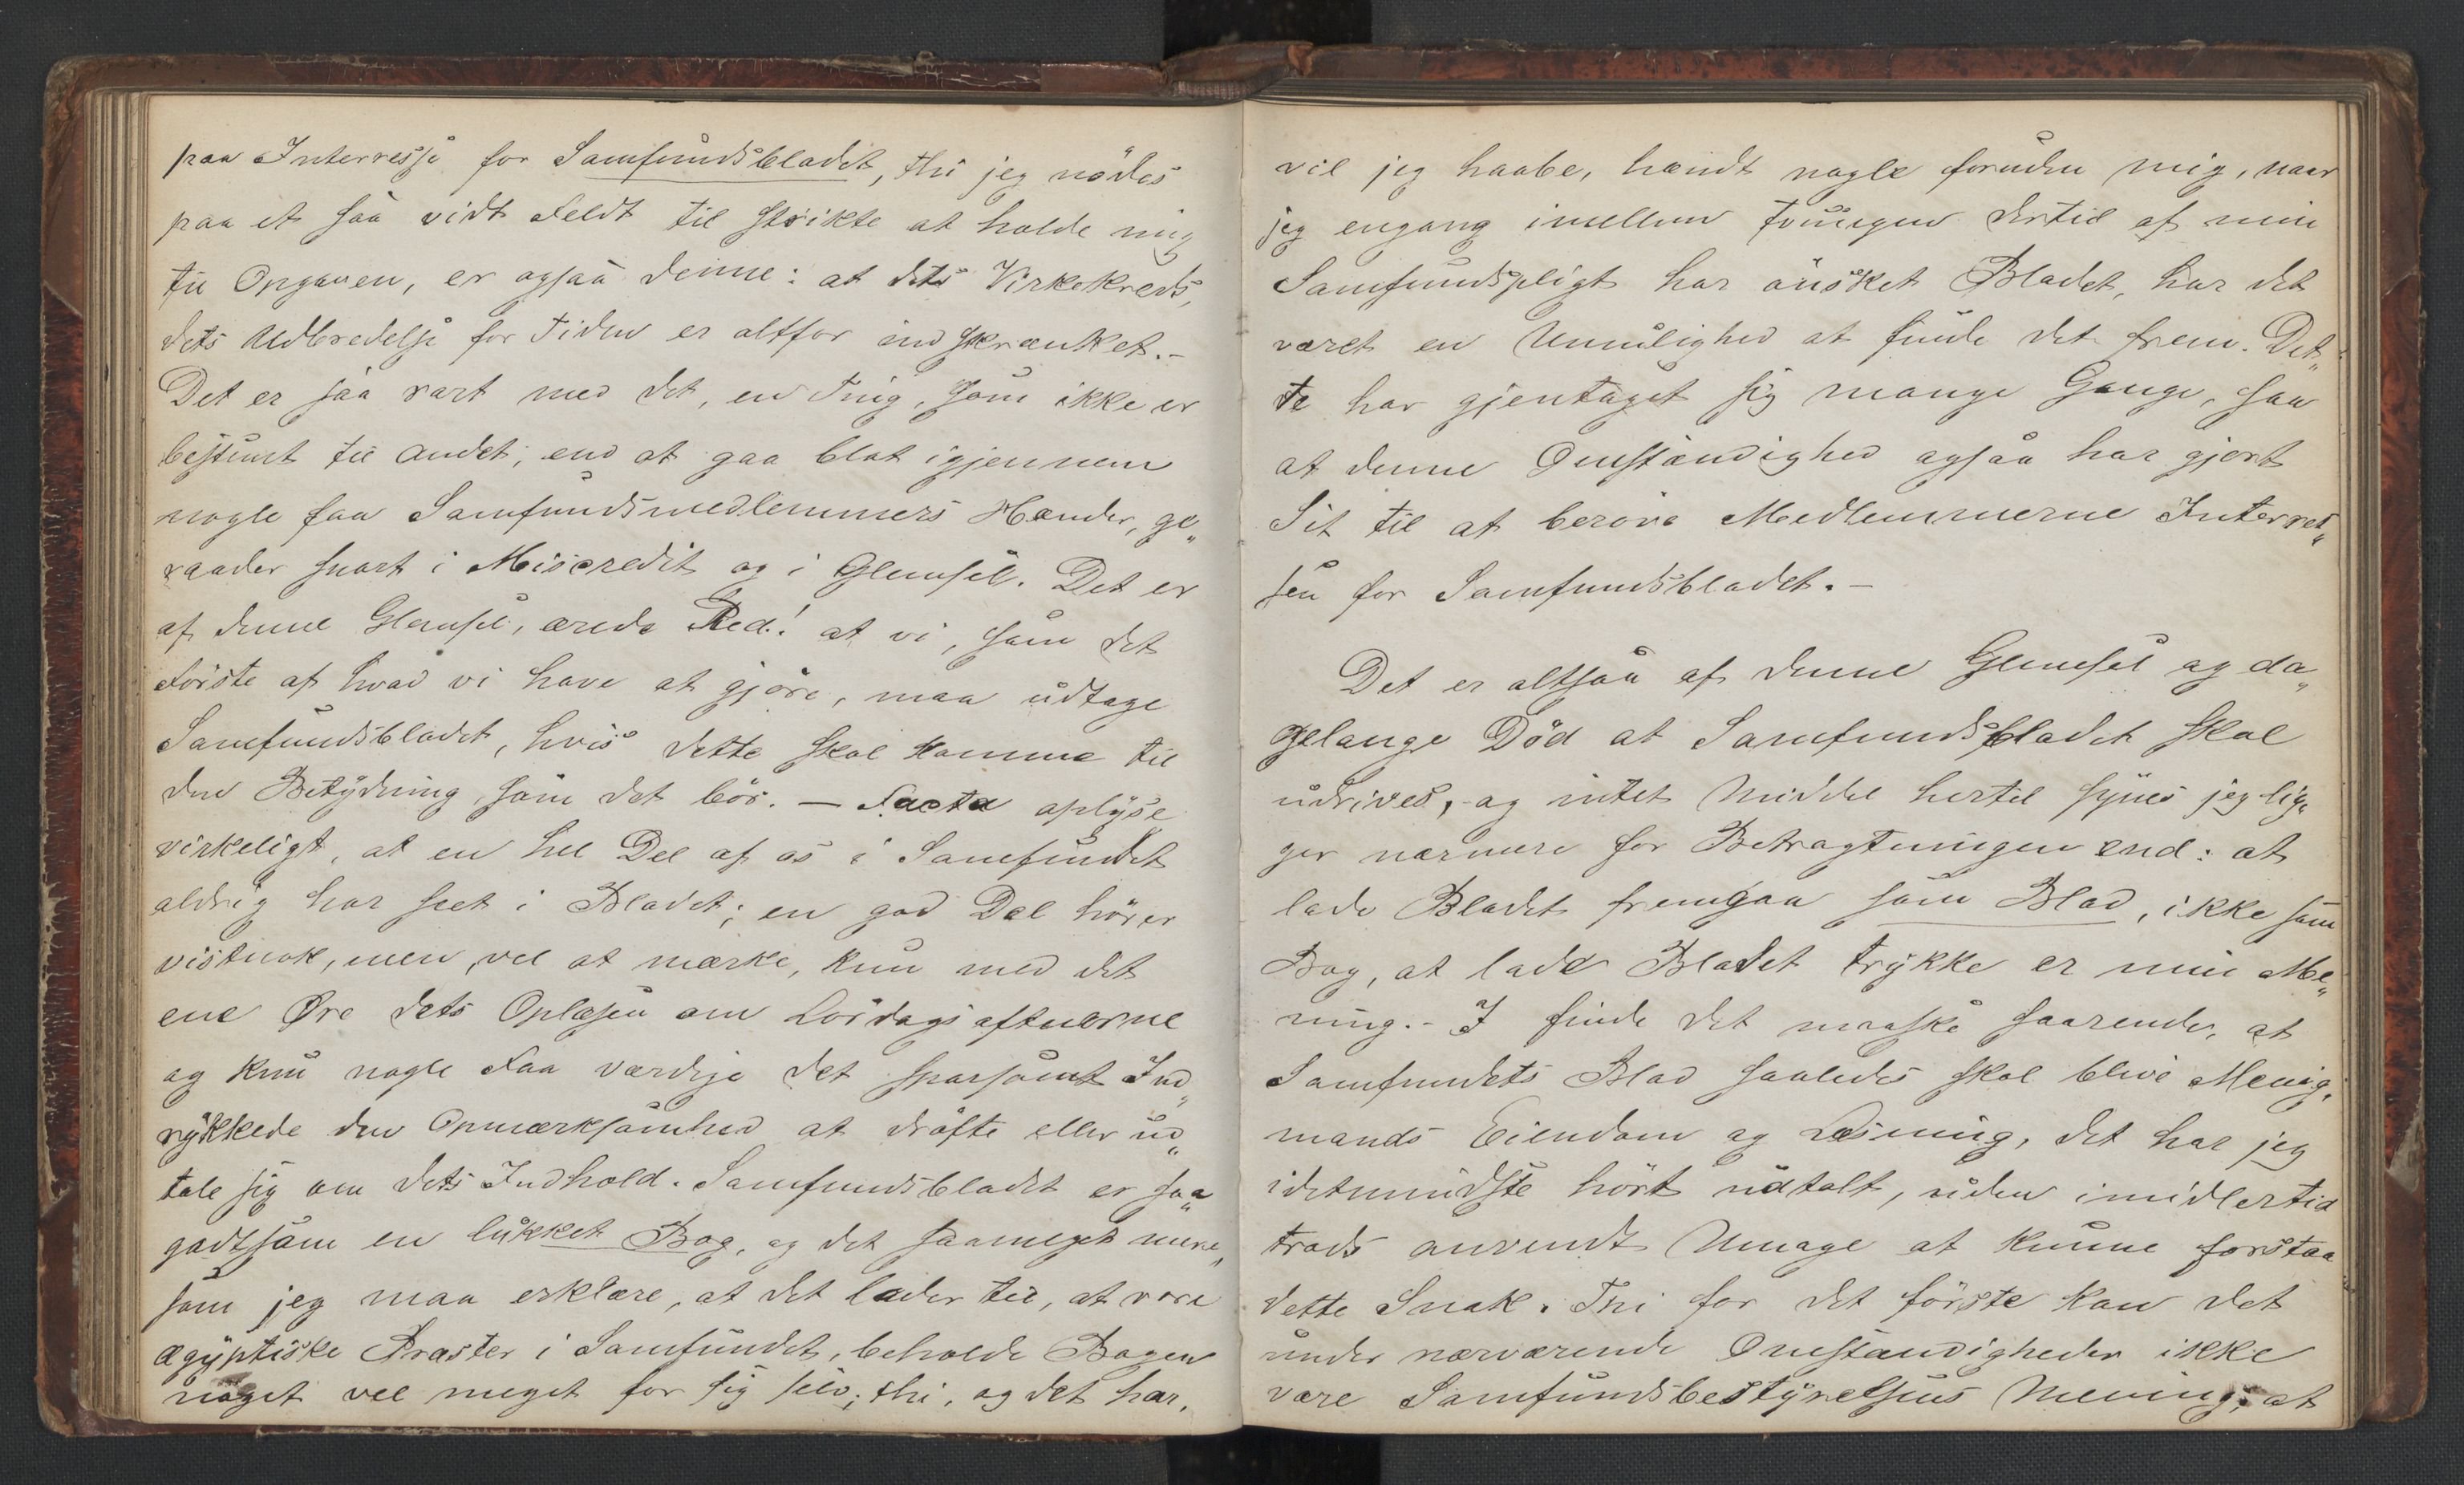 paa Interresse for Samfundsbladet, thi jeg nödes
paa et saa vidt Feldt til strikte at holde mig
til Opgaven, er ogsaa denne: at dets Virkekreds,
dets Udbredelse for Tiden er altfor indskrænket.-
Det er saa rart med det, en Ting, som ikke er
bestemt til andet, end at gaa blot igjennem
nogle faa Samfundsmedlemmers Hænder, ge„
raader snart i Miscredit og i Glemsel. Det er
af denne Glemsel, ærede Red.! at vi, som det
Förste af hvad vi have at gjöre, maa udtage
Samfundsbladet, hvis dette skal komme til
den Betydning, som det bör. — Facta oplyse
virkeligt, at en hel Del af os i Samfundet
aldrig har seet i Bladet; en god Del hörer
vistnok, men, vel at mærke, kun med det
ene Øre dets Oplæsen om Lördagsaftnerne
og kun nogle Faa værdige det sparsomt Ind„
rykkede den Opmærksomhed at dröfte eller ud„
tale sig om dets Indhold. Samfundsbladet er saa„
godtsom en lukket Bog, og det saameget mere,
som jeg maa erklære, at det lader til, at vore
ægyptiske Præster i Samfundet, beholde Bogen
noget vel meget for sig selv; thi, og det har,
vil jeg haabe, hændt nogle foruden mig, naar
jeg engang imellem tvungen dertil af min
Samfundspligt har önsket Bladet, har det
været en Umulighed at finde det frem. Det„
te har gjentaget sig mange Gange, saa
at denne Omstændighed ogsaa har gjort
Sit til at beröve Medlemmerne Interres„
sen for Samfundsbladet.-
Det er altsaa af denne Glemsel og da„
gelange Död at Samfundsbladet skal
udrives, og intet Middel hertil synes jeg lig„
ger nærmere for Betragtningen end: at
lade Bladet fremgaa som Blad, ikke som
Bog, at lade Bladet trykke er min Me„
ning.- I finde det maaske saarende, at
Samfundets Blad saaledes skal blive Menig„
mands Eiendom og Læsning, det har jeg
idetmindste hört udtalt, uden imidlertid
trods anvendt Umage at kunne forstaa
dette Snak. Thi for det förste kan det
under nærværende Omstændigheder ikke
være Samfundsbestyrelsens Mening, at